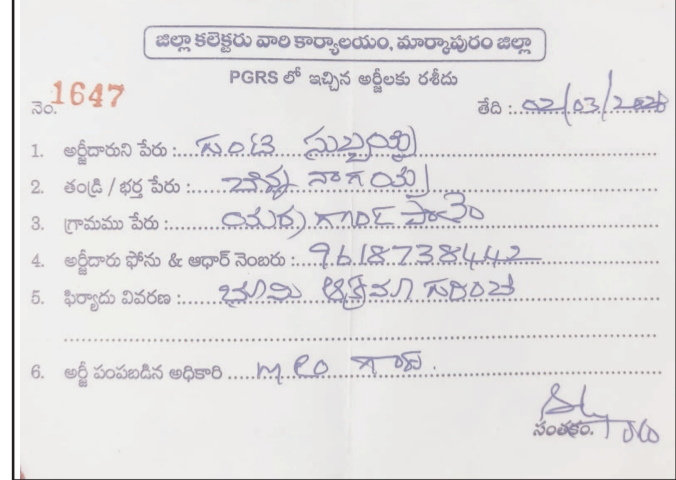 జిల్లా కలెక్టరు వారి కార్యాలయం, మార్కాపురం జిల్లా
PGRS లో ఇచ్చిన అర్జీలకు రశీదు
నెం. 1647
తేది : 02/03/2026
1. అర్జీదారుని పేరు : గుంటి సుబ్బయ్య
2. తండ్రి / భర్త పేరు : చిన్న నాగయ్య
3. గ్రామము పేరు :
4. అర్జీదారు ఫోను & ఆధార్ నెంబరు : 9618738442
5. ఫిర్యాదు వివరణ : భూమి ఆక్రమ
6. అర్జీ పంపబడిన అధికారి గారు.
సంతకం.